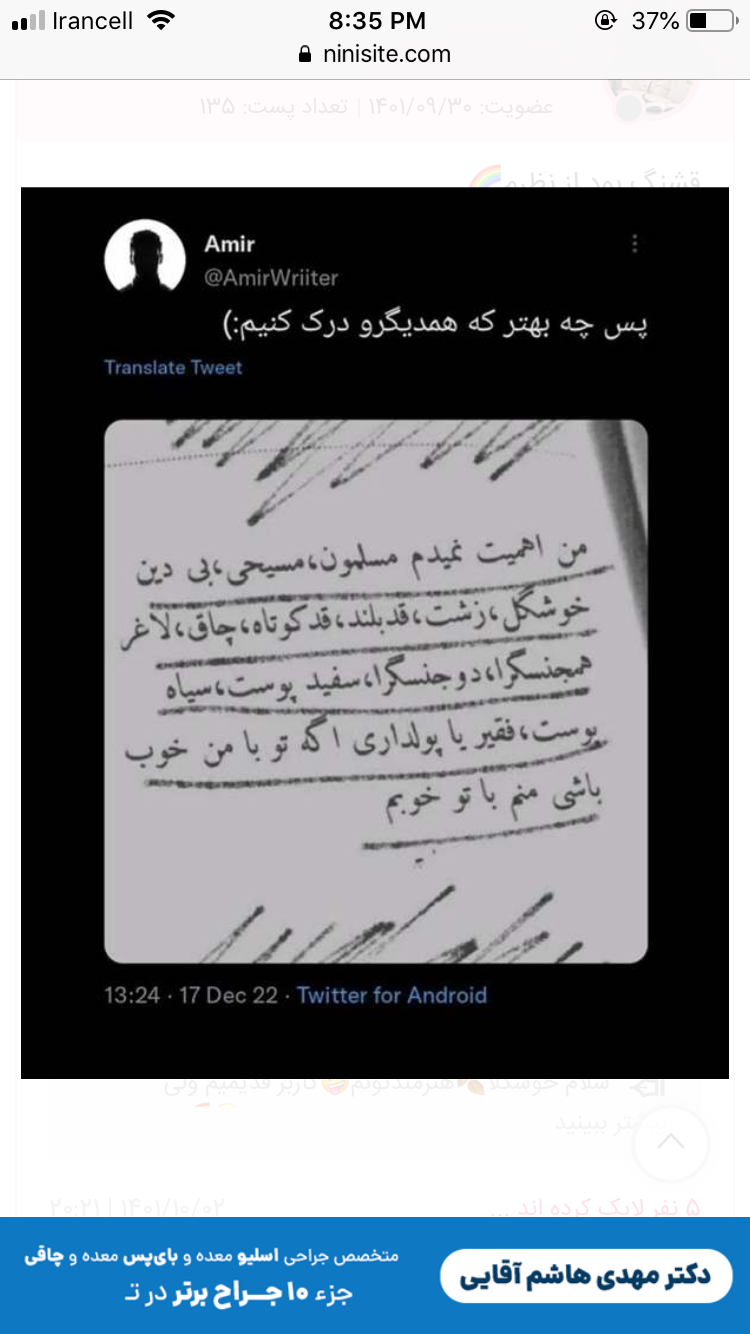 Irancell 8:35 PM 37%
ninisite.com
عضویت: ۱۴۰۱/۰۹/۳۰ | تعداد پست: ۱۳۵
قشنگ بود از نظرم🌈
Amir
@AmirWriiter
پس چه بهتر که همدیگرو درک کنیم:)
Translate Tweet
من اهمیت نمیدم مسلمون،مسیحی،بی دین
خوشگل،زشت،قدبلند،قدکوتاه،چاق،لاغر
همجنسگرا،دوجنسگرا،سفید پوست،سیاه
پوست،فقیر یا پولداری اگه تو با من خوب
باشی منم با تو خوبم
13:24 · 17 Dec 22 · Twitter for Android
سلام خوشگلا🍂هنرمندتونم😍کاربر قدیمیم ولی
بیشتر ببینید
۵ نفر لایک کرده اند ...
۱۴۰۱/۱۰/۰۲ | ۲۰:۲۱
دکتر مهدی هاشم آقایی
متخصص جراحی اسلیو معده و بای‌پس معده و چاقی
جزء ۱۰ جراح برتر در تـ